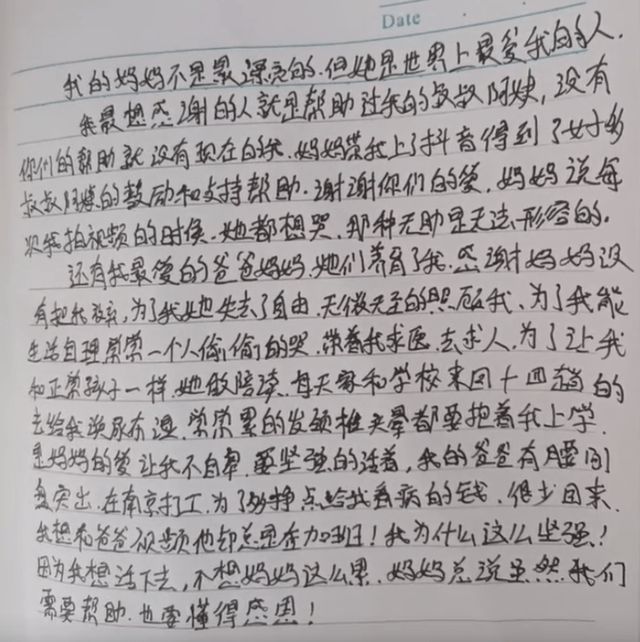 Date
我的妈妈不是最漂亮的.但她是世界上最爱我的人.
我最想感谢的人就是帮助过我的叔叔阿姨,没有
你们的帮助就没有现在的我.妈妈带我上了抖音得到了好多
叔叔阿姨的鼓励和支持帮助.谢谢你们的爱.妈妈说每
次我拍视频的时候.她都想哭.那种无助是无法形容的.
还有我最爱的爸爸妈妈.她们养育了我.感谢妈妈没
有把我放弃,为了我她失去了自由.无微无至的照顾我.为了我能
生活自理常常一个人偷偷的哭.带着我求医.去求人.为了让我
和正常孩子一样.她做陪读.每天家和学校来回十四趟的
去给我换尿布湿.常常累的发颈椎头晕都要抱着我上学.
是妈妈的爱让我不自卑.要坚强的活着,我的爸爸有腰间
盘突出.在南京打工.为了多挣点给我看病的钱.很少回来.
我想和爸爸视频他却总是在加班!我为什么这么坚强!
因为我想活下去,不想妈妈这么累.妈妈总说虽然我们
需要帮助.也要懂得感恩!